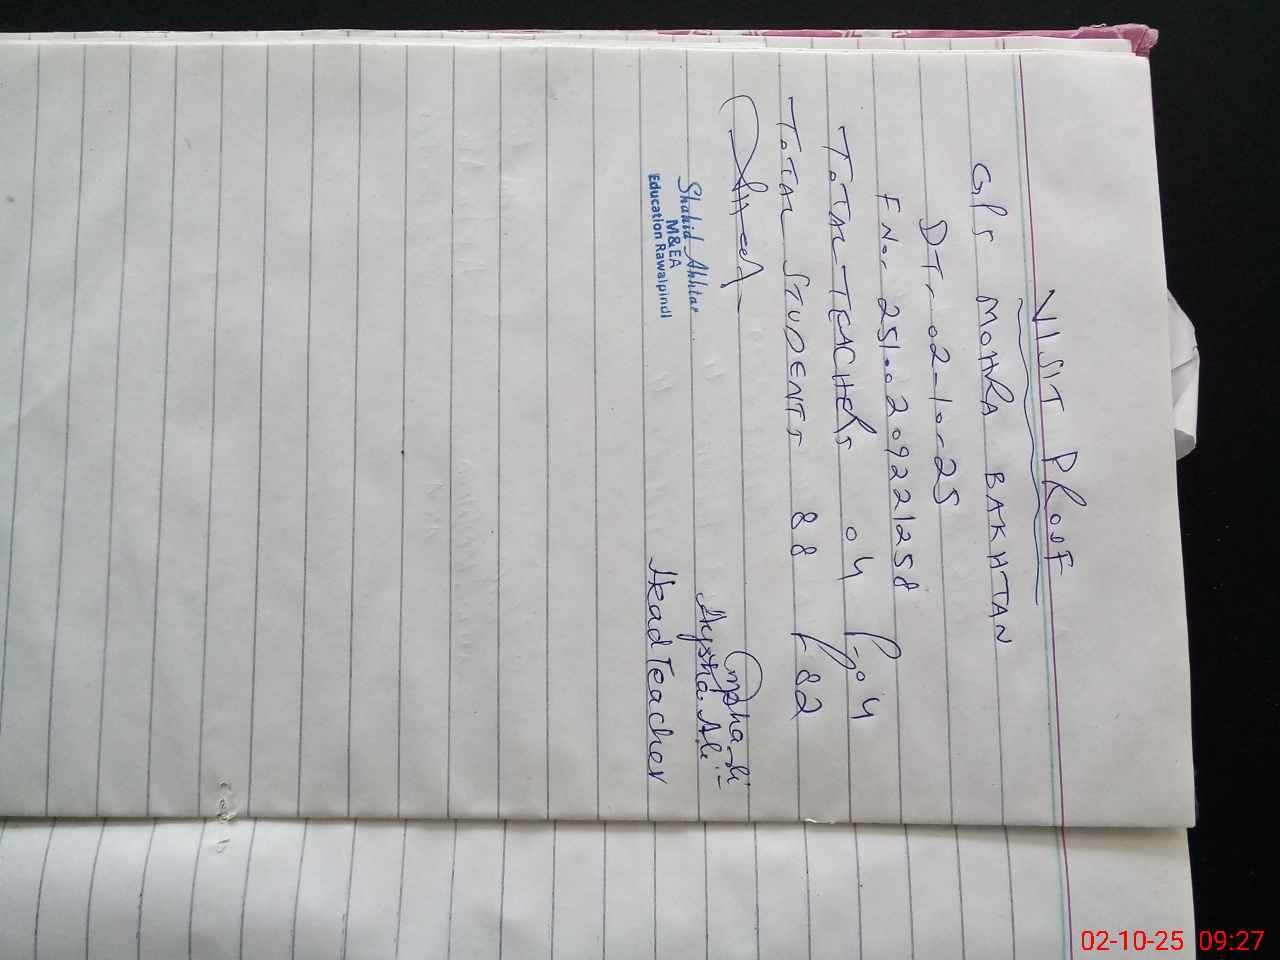 VISIT PROOF
GPS MOHRA BAKHTAN
DT- 02-10-25
F No- 25100209221258
TOTAL TEACHERS 04 P-04
TOTAL STUDENTS 88 P 82
Shahid Akhtar
M&EA
Education Rawalpindi
Aysha Ali
Head Teacher
02-10-25 09:27